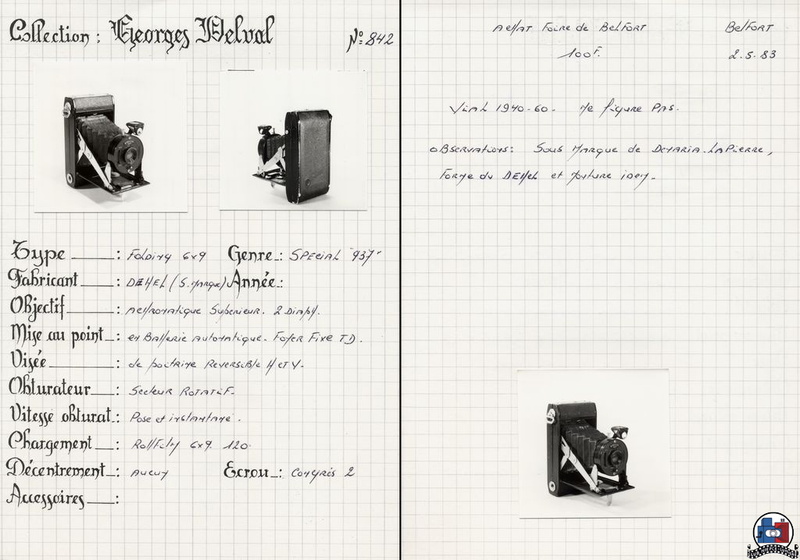 Collection : Georges Delval
No: 842
Type : Folding 6x9 Genre : SPECIAL "937"
Fabricant : DEHEL (S. Marque) Année :
Objectif : Achromatique Superieur. 2 Diaph.
Mise au point : en Batterie Automatique. Foyer Fixe T.D.
Visée : de poitrine Reversible H et V.
Obturateur : Secteur Rotatif.
Vitesse obturat : Pose et instantané.
Chargement : Rollfilm 6x9. 120.
Décentrement : Aucun Ecrou : Congrès 2
Accessoires :
Achat Foire de Belfort Belfort
100F. 2.5.83
Vial 1940-60. Ne figure Pas.
Observations : Sous Marque de Demaria.LaPierre,
Forme du DEHEL et Monture idem.